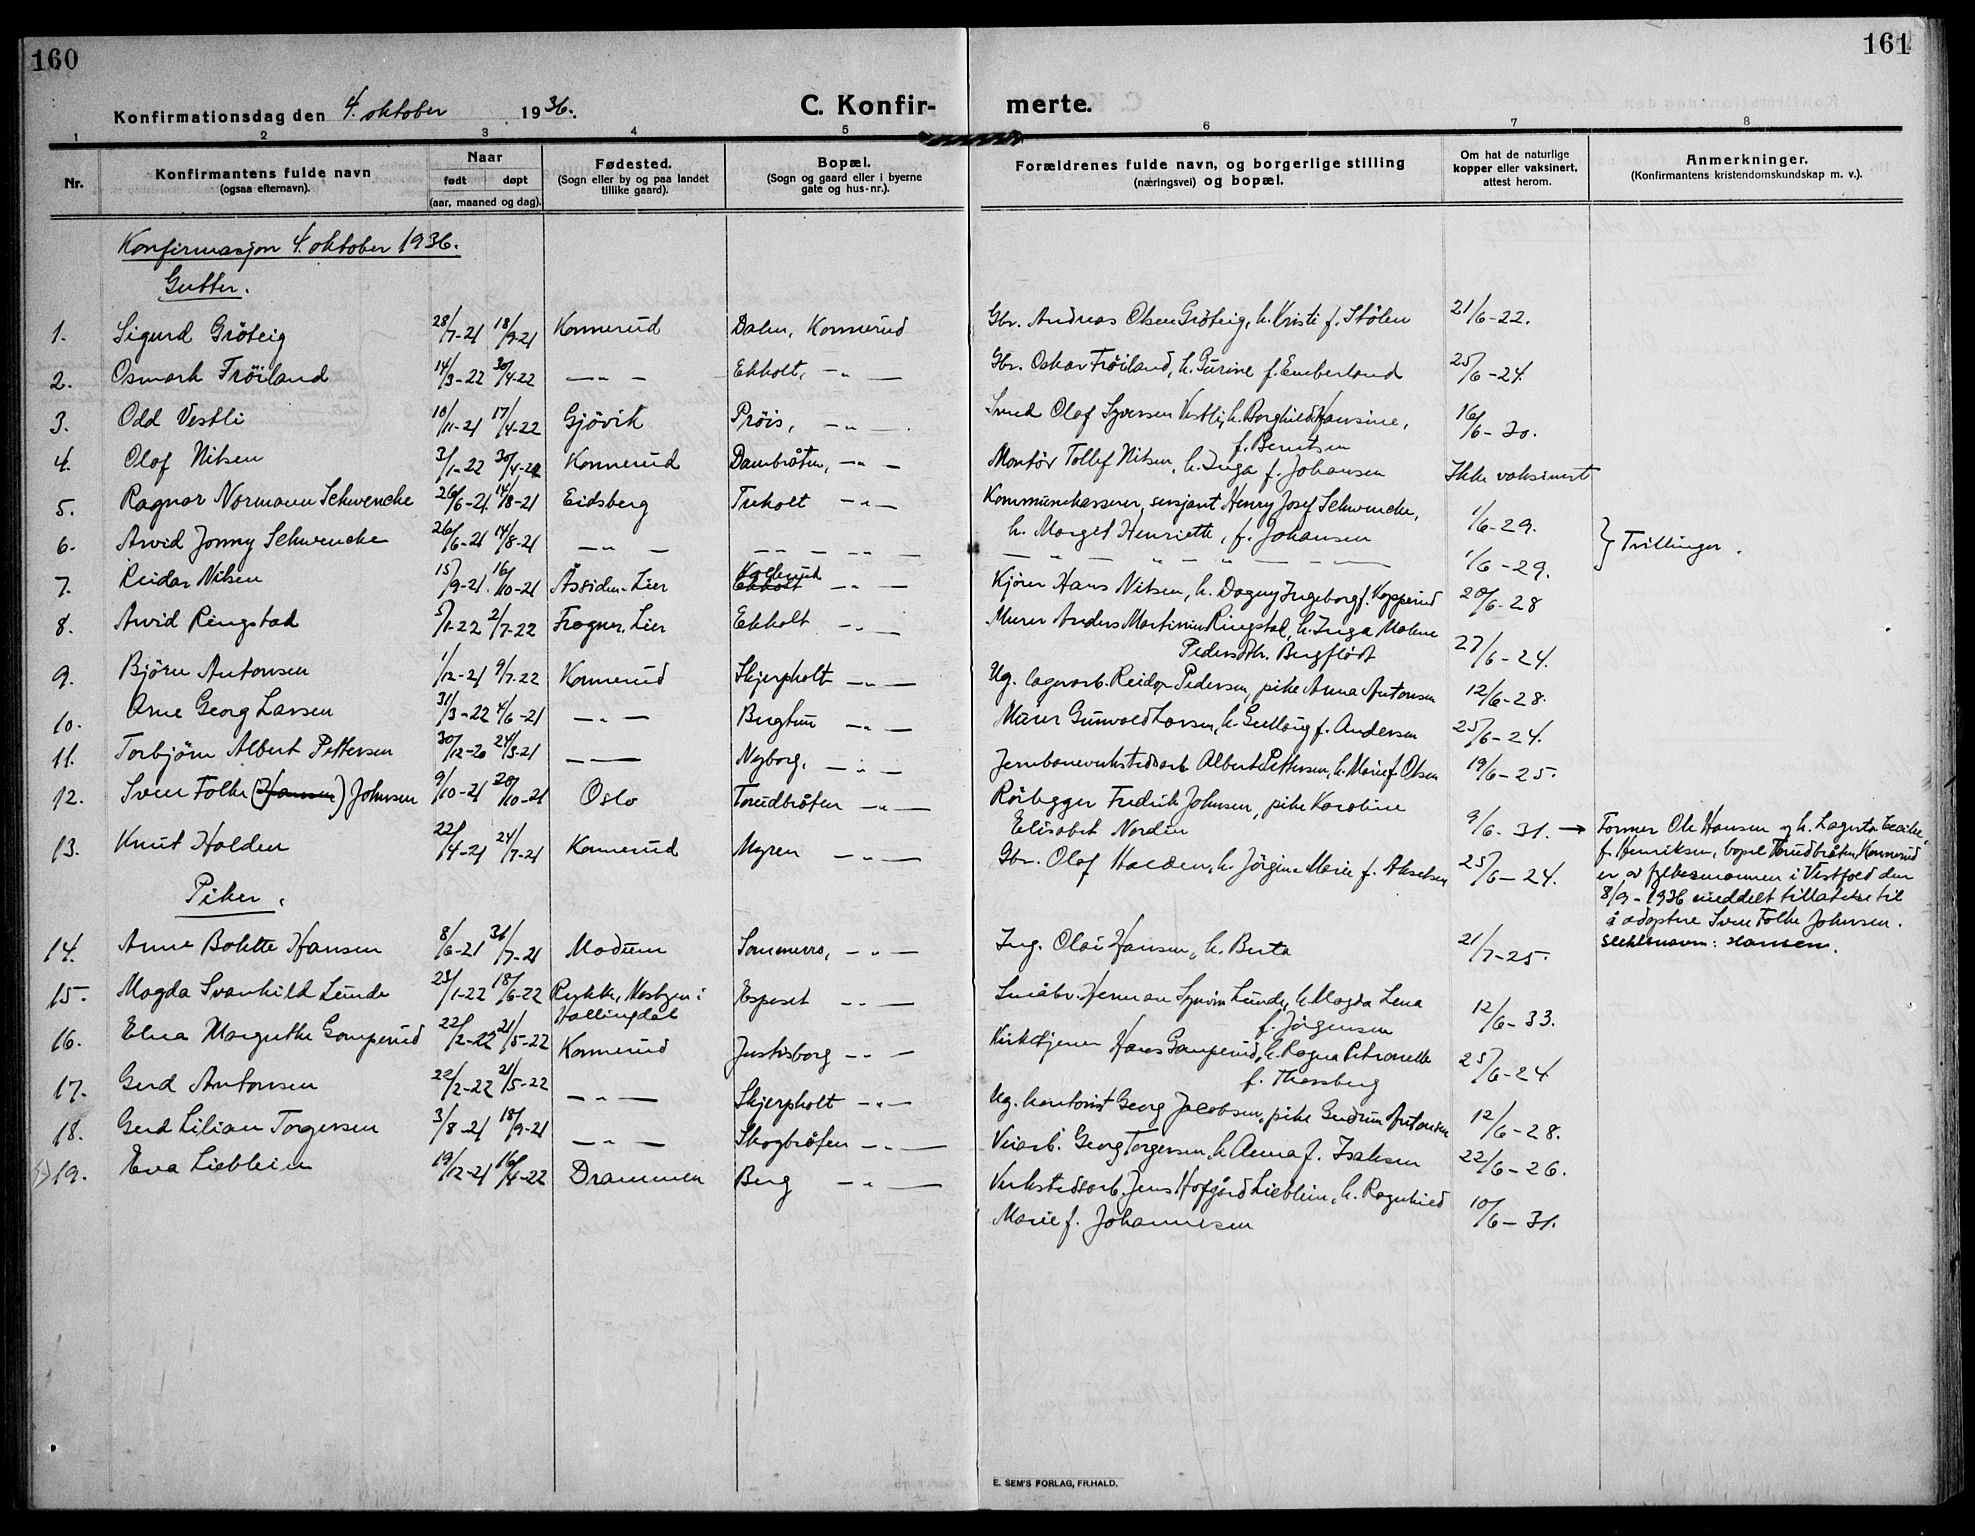 160
161
Konfirmationsdag den 4. oktober 1936.
C. Konfir-
merte.
1 2 3 4 5 6 7 8
Nr.
Konfirmantens fulde navn
(ogsaa efternavn).
Naar
født døpt
(aar, maaned og dag).
Fødested.
(Sogn eller by og paa landet
tillike gaard).
Bopæl.
(Sogn og gaard eller i byerne
gate og hus-nr.).
Forældrenes fulde navn, og borgerlige stilling
(næringsvei) og bopæl.
Om hat de naturlige
kopper eller vaksinert,
attest herom.
Anmerkninger.
(Konfirmantens kristendomskundskap m. v.).
Konfirmasjon 4. oktober 1936.
Gutter.
1. Sigurd Gröteig 28/7-21 18/9-21 Konnerud Dalen, Konnerud Gbr. Andreas Olsen Gröteig, h. Kristi f. Stölen 21/6-22.
2. Osmark Fröiland 14/3-22 30/4-22 —"— Ekholt, —"— Gbr. Oskar Fröiland, h. Gurine f. Emberland 25/6-24.
3. Odd Vestli 10/11-21 17/4-22 Gjövik Pröis, —"— Smed Olaf Syversen Vestli, h. Borghild Hansine,
f. Berntsen 16/6-30.
4. Olaf Nilsen 3/1-22 30/4-22 Konnerud Dambråten, —"— Montör Tollef Nilsen, h. Inga f. Johansen Ikke vaksinert
5. Ragnar Normann Schwencke 26/6-21. 14/8-21 Eidsberg Treholt —"— Kommunekasserer, sersjant Henry Josef Schwencke,
h. Margit Henriette, f. Johansen 1/6-29.
6. Arvid Jonny Schwencke 26/6-21 14/8-21 —"— —"— —"— —"— 1/6-29.
} Trillinger.
7. Reidar Nilsen 15/9-21. 16/10-21 Åssiden. Lier Kollerud
Ekholt —"— Kjörer Hans Nilsen, h. Dagny Ingeborg f. Kopperud 20/6-28
8. Arvid Ringstad 5/1-22 2/7-22 Frogner, Lier Ekholt —"— Murer Anders Martinius Ringstad, h. Inga Malene
Pedersdtr. Bergflödt 27/6-24.
9. Björn Antonsen 1/12-21 9/7-22 Konnerud Skjerpholt —"— Ug. lagerarb. Reidar Pedersen, pike Anna Antonsen 12/6-28.
10. Arne Georg Larsen 31/3-22 4/6-21 —"— Bergtun —"— Murer Gunvald Larsen, h. Gudlaug f. Andersen 25/6-24.
11. Torbjörn Albert Pettersen 30/12-20 24/3-21 —"— Nyborg, —"— Jernbaneverkstedsarb. Albert Pettersen, h. Marie f. Olsen 19/6-25.
12. Sven Folke (Hansen) Johnsen 9/10-21 20/10-21 Oslo Torudbråten —"— Rörlegger Fredrik Johnsen, pike Karoline
Elisabet Nordin 9/6-31. →
Former Ole Hansen og h. Lagerta Cecilie,
f. Henriksen, bopel Torudbråten, Konnerud
er av fylkesmannen i Vestfold den
8/9-1936 meddelt tillatelse til
å adoptere Sven Folke Johnsen.
Slektsnavn: Hansen.
13. Knut Holden 22/4-21 24/7-21 Konnerud Myren —"— Gbr. Olaf Halden, h. Jörgine Marie f. Akselsen 25/6-24.
Piker.
14. Anne Bolette Hansen 8/6-21 31/7-21 Modum Sommerro, —"— Ing. Olai Hansen, h. Berta 21/7-25.
15. Magda Svanhild Lunde 23/1-22 18/6-22 Rukke, Nesbyen i
Hallingdal Espeset —"— Småbr. Herman Synvin Lunde, h. Magda Lena
f. Jörgensen 12/6-33.
16. Elna Margrethe Gomperud 22/2-22 21/5-22 Konnerud Justisborg —"— Kirketjener Hans Gamperud, h. Ragna Petronelle
f. Thorsberg 25/6-24
17. Gerd Antonsen 22/2-22 21/5-22 —"— Skjerpholt —"— Ug. kontorist Georg Jacobsen, pike Gudrun Antonsen 12/6-28.
18. Gerd Lilian Torgersen 3/8-21 18/9-21 —"— Skogbråten —"— Veiarb. Georg Torgersen, h. Anna f. Isaksen 22/6-26.
19. Eva Lieblein 19/12-21 16/4-22 Drammen Berg —"— Verkstedsarb. Jens Hofgård Lieblein, h. Ragnhild
Marie f. Johannesen 10/6-31.
E. SEM'S FORLAG, FR.HALD.